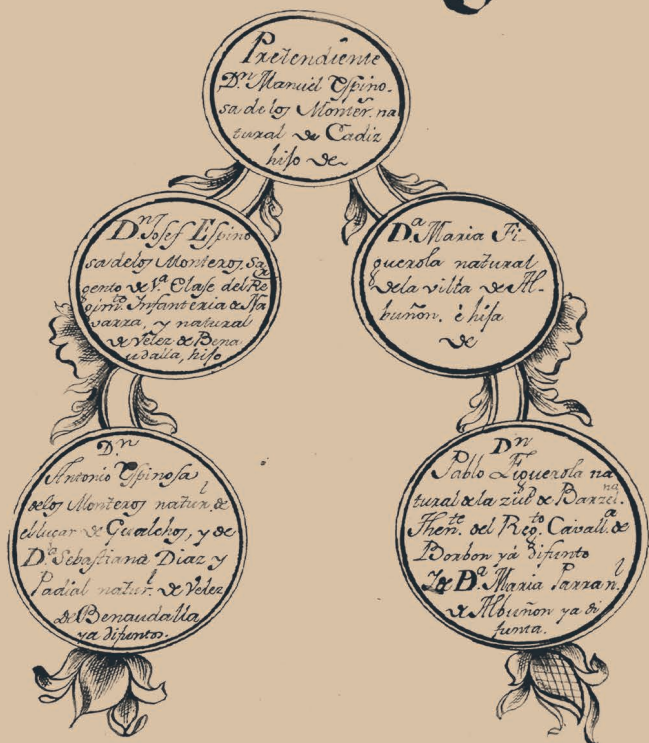 Pretendiente
Dn. Manuel Espino-
sa de los Monters. na
tural de Cadiz
hijo de
Dn. Josef Espino
sa de los Monteros, Sar
gento de 1ª. Clase del Re
gimto. Infanteria de Na
varra, y natural
de Velez de Bena
udalla, hijo
Dª. Maria Fi-
guerola natural
de la villa de Al-
buñon. è hija
de
Dn
Antonio Espinosa
de los Monteros naturl. de
el lugar de Gualchos, y de
Dª. Sebastiana Diaz y
Padial naturl. de Velez
de Benaudalla
ya difuntos.
Dn
Pablo Figuerola na
tural de la ziud de Barzelna.
Thente. del Regto. Cavallª. de
Borbon yá difunto
Dª. Maria Parranl.
de Albuñon ya di
funta.